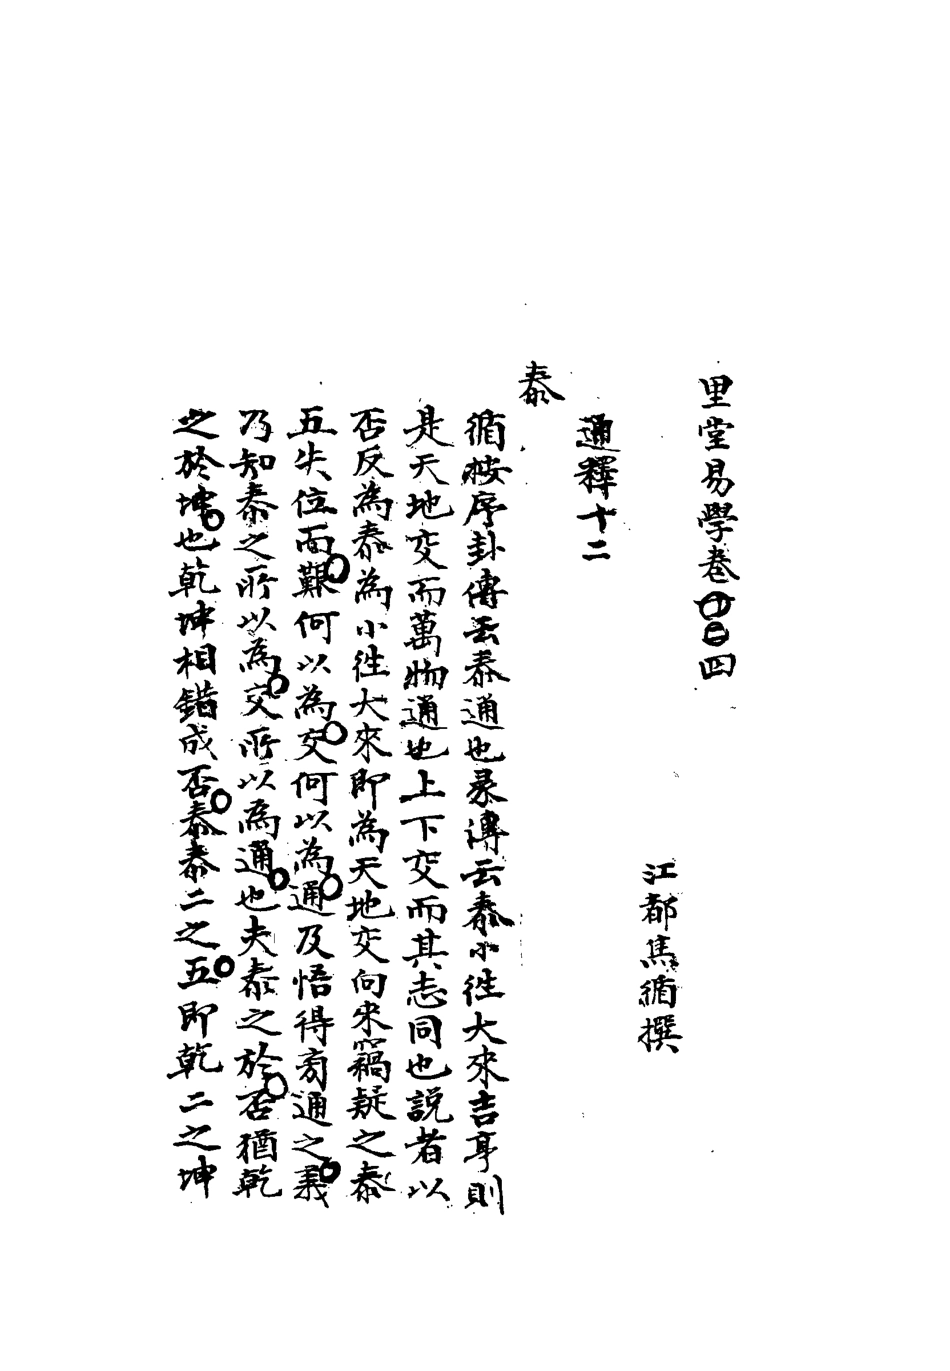 里堂易學卷十三四
江都焦循撰
通釋十二
泰
循按序卦傳云泰通也彖傳云泰小往大來吉亨則
是天地交而萬物通也上下交而其志同也説者以
否反為泰為小往大來即為天地交向來竊疑之泰
五失位而艱何以為交何以為通及悟得旁通之義
乃知泰之所以為交所以為通也夫泰之於否猶乾
之於坤也乾坤相錯成否泰泰二之五即乾二之坤